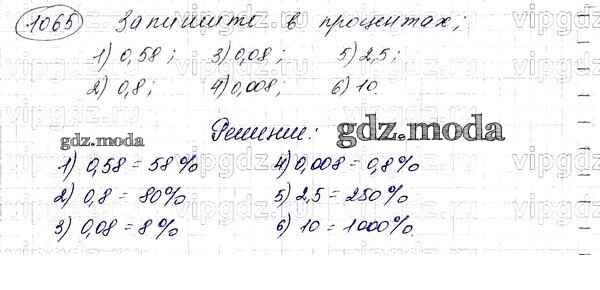 1065 Запишите в процентах;
1) 0,58; 3) 0,08; 5) 2,5;
2) 0,8; 4) 0,008; 6) 10.
Решение: gdz.moda
gdz.moda
1) 0,58 = 58% 4) 0,008 = 0,8%
2) 0,8 = 80% 5) 2,5 = 250%
3) 0,08 = 8% 6) 10 = 1000%